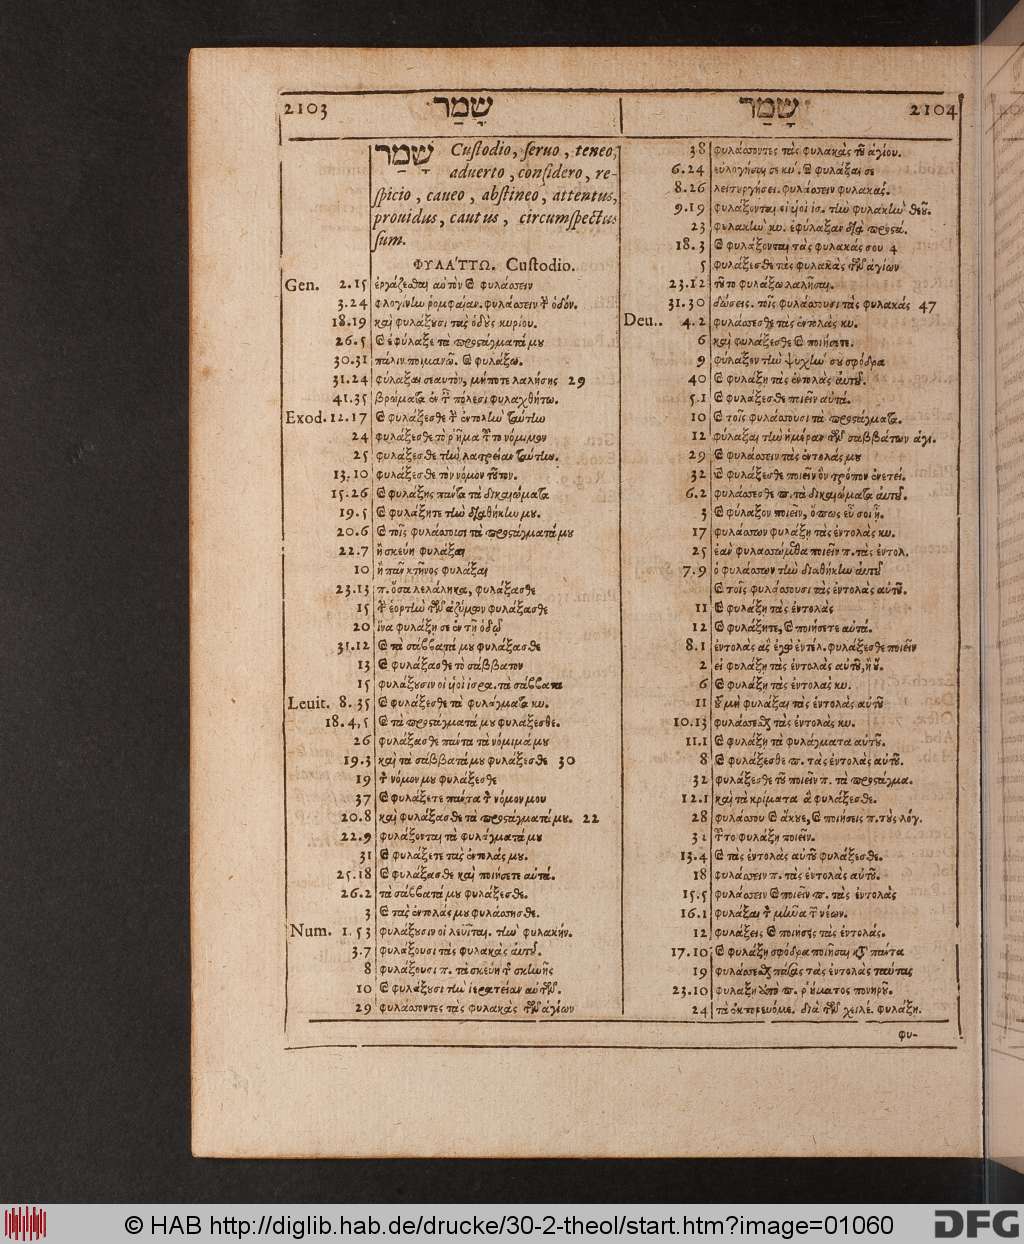 2103 שָׁמַר
שָׁמַר Custodio, seruo, teneo,
aduerto, considero, re-
spicio, caueo, abstineo, attentus,
prouidus, cautus, circumspectus
sum.
ΦΥΛΑ'ΤΤΩ. Custodio.
Gen. 2.15 ἐργάζεσθαι αὐτὸν καὶ φυλάσσειν
3.24 φλογίνην ῥομφαίαν. φυλάσσειν τὴν ὁδόν.
18.19 καὶ φυλάξουσι τὰς ὁδοὺς κυρίου.
26.5 καὶ ἐφύλαξε τὰ προστάγματά μου
30.31 πάλιν ποιμανῶ. καὶ φυλάξω.
31.24 φύλαξαι σεαυτὸν, μήποτε λαλήσῃς 29
41.35 βρώματα ἐν ταῖς πόλεσι φυλαχθήτω.
Exod. 12.17 καὶ φυλάξεσθε τὴν ἐντολὴν ταύτην
24 φυλάξεσθε τὸ ῥῆμα τοῦτο νόμιμον
25 φυλάξεσθε τὴν λατρείαν ταύτην.
13.10 φυλάξεσθε τὸν νόμον τοῦτον.
15.26 καὶ φυλάξῃς πάντα τὰ δικαιώματα
19.5 καὶ φυλάξητε τὴν διαθήκην μου.
20.6 καὶ τοῖς φυλάσσουσι τὰ προστάγματά μου
22.7 ἢ σκεύη φυλάξαι
10 ἢ πᾶν κτῆνος φυλάξαι
23.13 π. ὅσα λελάληκα, φυλάξασθε
15 τὴν ἑορτὴν τῶν ἀζύμων φυλάξασθε
20 ἵνα φυλάξῃ σε ἐν τῇ ὁδῷ
31.12 καὶ τὰ σάββατά μου φυλάξασθε
13 καὶ φυλάξασθε τὸ σάββατον
15 φυλάξουσιν οἱ υἱοὶ ισρα. τὰ σάββατα
Leuit. 8.35 καὶ φυλάξεσθε τὰ φυλάγματα κυ.
18.4,5 καὶ τὰ προστάγματά μου φυλάξεσθε.
26 φυλάξασθε πάντα τὰ νόμιμά μου
19.3 καὶ τὰ σάββατά μου φυλάξεσθε 30
19 τὸν νόμον μου φυλάξεσθε
37 καὶ φυλάξετε πάντα τὸν νόμον μου
20.8 καὶ φυλάξασθε τὰ προστάγματά μου. 22
22.9 φυλάξονται τὰ φυλάγματά μου
31 καὶ φυλάξετε τὰς ἐντολάς μου.
25.18 καὶ φυλάξασθε καὶ ποιήσετε αὐτά.
26.2 τὰ σάββατά μου φυλάξεσθε.
3 καὶ τὰς ἐντολάς μου φυλάσσησθε.
Num. 1.53 φυλάξουσιν οἱ λευῖται τὴν φυλακήν.
3.7 φυλάξουσι τὰς φυλακὰς αὐτοῦ.
8 φυλάξουσι π. τὰ σκεύη τῆς σκηνῆς
10 καὶ φυλάξουσι τὴν ἱερατείαν αὐτῶν.
29 φυλάσσοντες τὰς φυλακὰς τῶν ἁγίων
שָׁמַר 2104
38 φυλάσσοντες τὰς φυλακὰς τοῦ ἁγίου.
6.24 εὐλογήσαι σε κύ. καὶ φυλάξαι σε
8.26 λειτουργήσει. φυλάσσειν φυλακάς.
9.19 φυλάξονται οἱ υἱοὶ ισ. τὴν φυλακὴν θεοῦ.
23 φυλακὴν κυ. ἐφύλαξαν διὰ προστά.
18.3 καὶ φυλάξονται τὰς φυλακάς σου 4
5 φυλάξεσθε τὰς φυλακὰς τῶν ἁγίων
23.12 τοῦτο φυλάξω λαλῆσαι.
31.30 δώσεις. τοῖς φυλάσσουσι τὰς φυλακάς 47
Deu.. 4.2 φυλάσσεσθε τὰς ἐντολὰς κυ.
6 καὶ φυλάξεσθε καὶ ποιήσετε.
9 φύλαξον τὴν ψυχήν σου σφόδρα
40 καὶ φυλάξῃ τὰς ἐντολὰς αὐτοῦ.
5.1 καὶ φυλάξεσθε ποιεῖν αὐτά.
10 καὶ τοῖς φυλάσσουσι τὰ προστάγματα.
12 φύλαξαι τὴν ἡμέραν τῶν σαββάτων ἁγι.
29 καὶ φυλάσσειν τὰς ἐντολάς μου
32 καὶ φυλάξεσθε ποιεῖν ὃν τρόπον ἐνετεί.
6.2 φυλάσσεσθε π. τὰ δικαιώματα αὐτοῦ.
3 καὶ φύλαξον ποιεῖν, ὅπως εὖ σοι ᾖ.
17 φυλάσσων φυλάξῃ τὰς ἐντολὰς κυ.
25 ἐὰν φυλασσώμεθα ποιεῖν π. τὰς ἐντολ.
7.9 ὁ φυλάσσων τὴν διαθήκην αὐτοῦ
καὶ τοῖς φυλάσσουσι τὰς ἐντολὰς αὐτοῦ.
11 καὶ φυλάξῃ τὰς ἐντολὰς
12 καὶ φυλάξητε, καὶ ποιήσετε αὐτά.
8.1 ἐντολὰς ἃς ἐγὼ ἐντελ. φυλάξεσθε ποιεῖν
2 εἰ φυλάξῃ τὰς ἐντολὰς αὐτοῦ, ἢ οὔ.
6 καὶ φυλάξῃ τὰς ἐντολὰς κυ.
11 τοῦ μὴ φυλάξαι τὰς ἐντολὰς αὐτοῦ
10.13 φυλάσσεσθαι τὰς ἐντολὰς κυ.
11.1 καὶ φυλάξῃ τὰ φυλάγματα αὐτοῦ.
8 καὶ φυλάξεσθε π. τὰς ἐντολὰς αὐτοῦ.
32 φυλάξεσθε τοῦ ποιεῖν π. τὰ προστάγμα.
12.1 καὶ τὰ κρίματα ἃ φυλάξεσθε.
28 φυλάσσου καὶ ἄκουε, καὶ ποιήσεις π. τοὺς λόγ.
32 τοῦτο φυλάξῃ ποιεῖν.
13.4 καὶ τὰς ἐντολὰς αὐτοῦ φυλάξεσθε.
18 φυλάσσειν π. τὰς ἐντολὰς αὐτοῦ.
15.5 φυλάσσειν καὶ ποιεῖν π. τὰς ἐντολὰς
16.1 φυλάξαι τὸν μῆνα τῶν νέων.
12 φυλάξεις καὶ ποιήσεις τὰς ἐντολάς.
17.10 καὶ φυλάξῃ σφόδρα ποιῆσαι κατὰ πάντα
19 φυλάσσεσθαι πάσας τὰς ἐντολὰς ταύτας
23.10 φυλάξῃ ἀπὸ π. ῥήματος πονηροῦ.
24 τὰ ἐκπορευόμε. διὰ τῶν χειλέ. φυλάξῃ.
φυ-
© HAB http://diglib.hab.de/drucke/30-2-theol/start.htm?image=01060
DFG